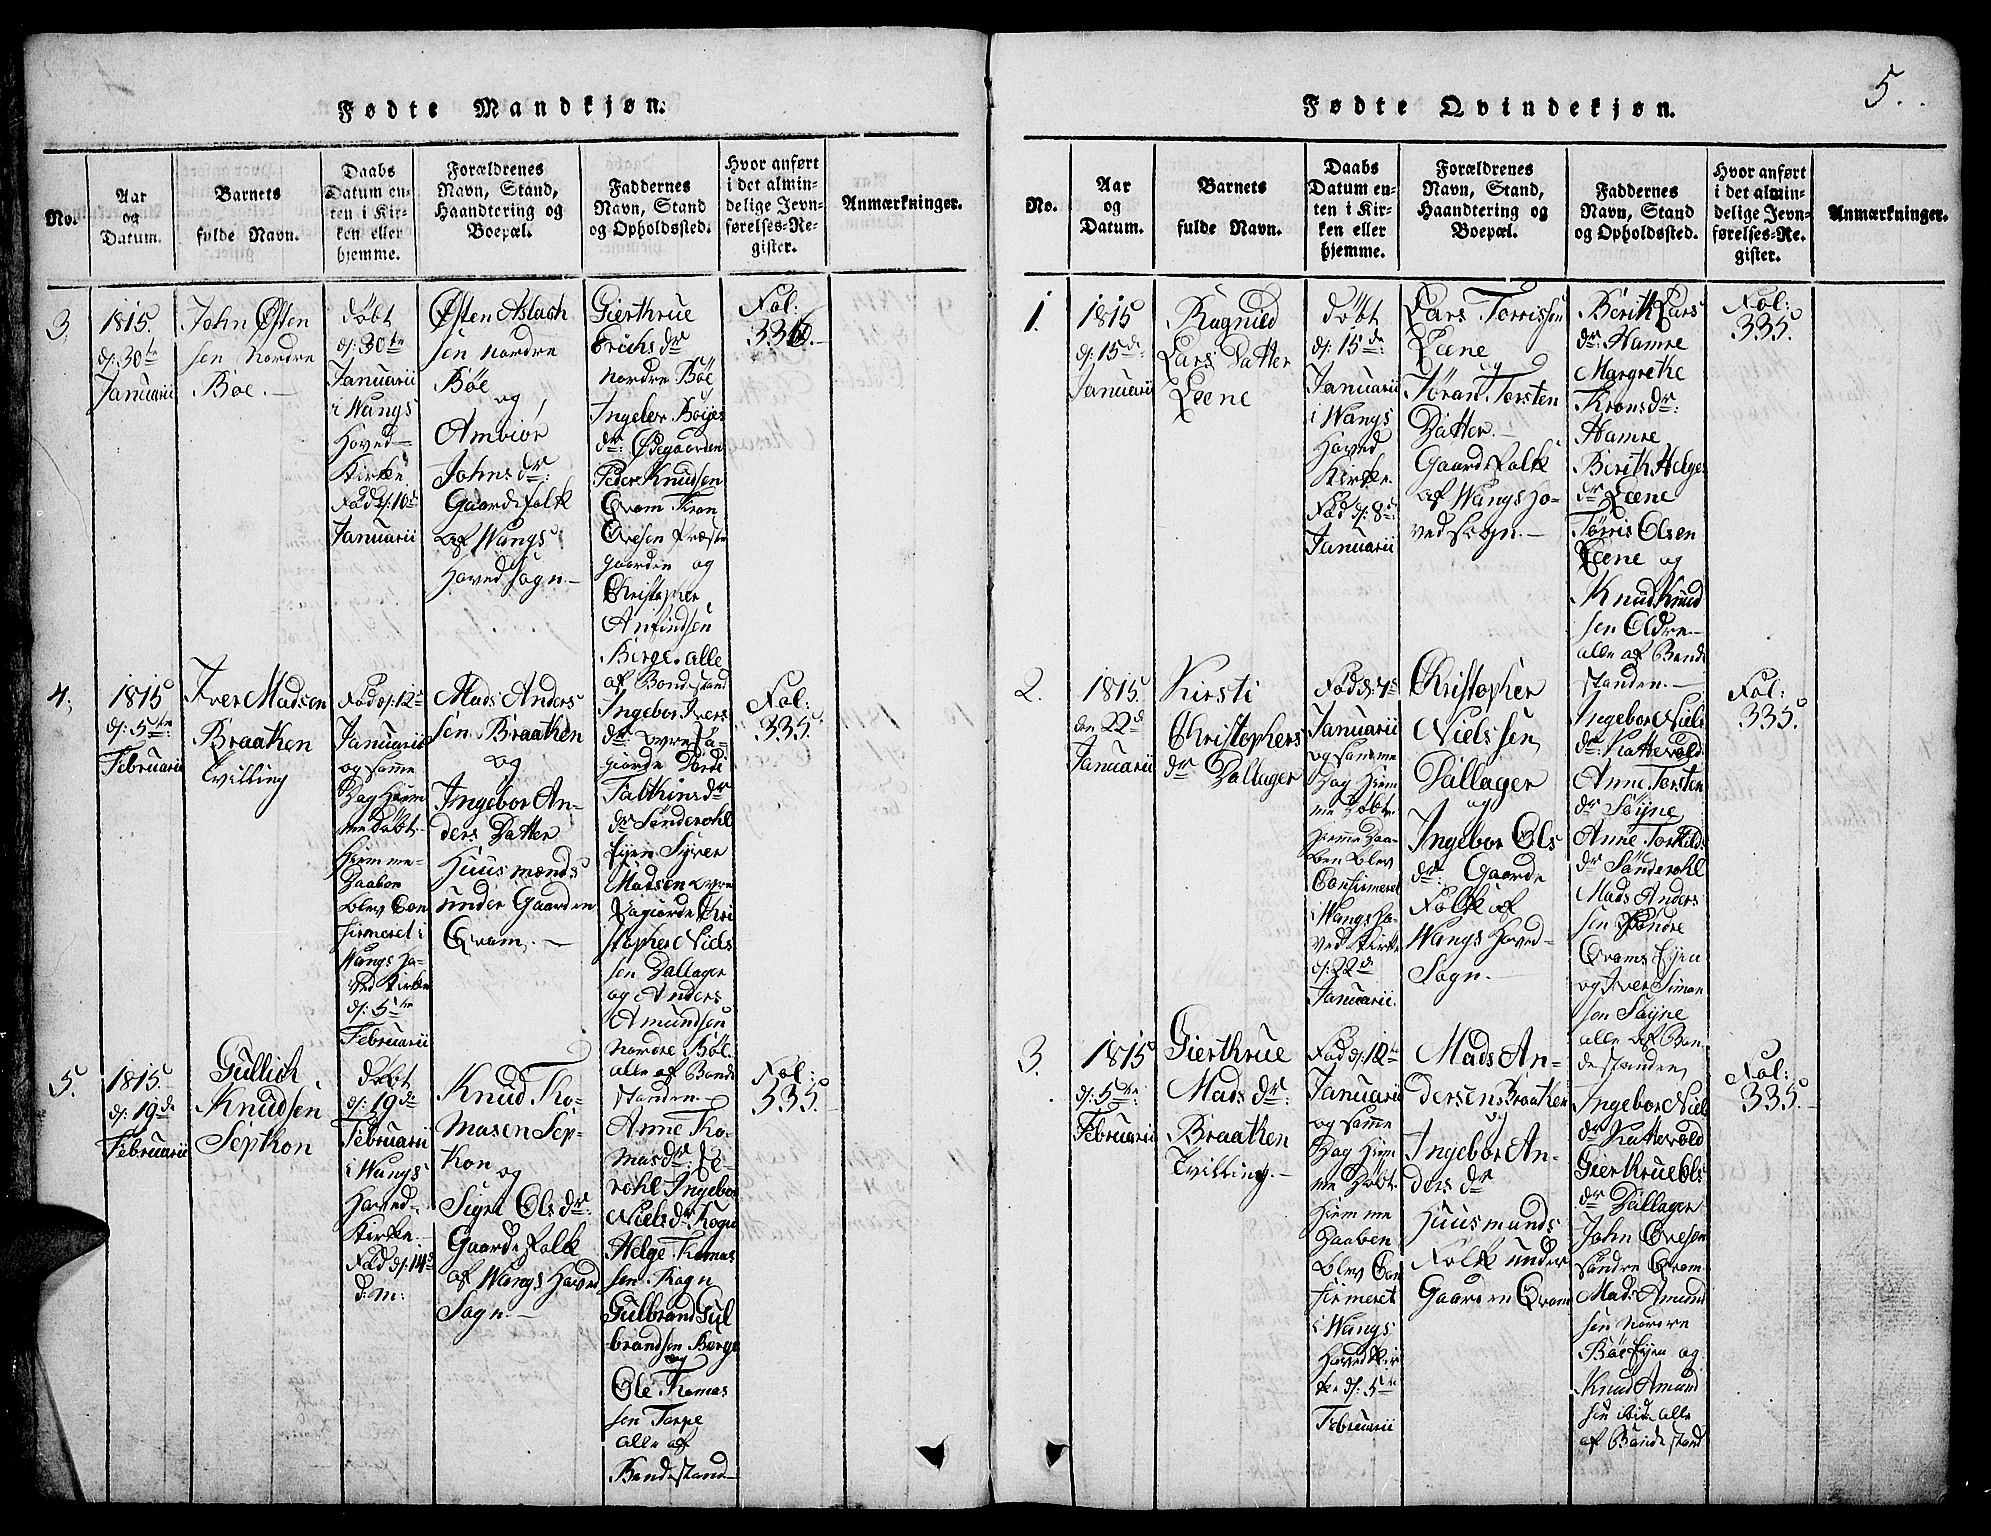 Fødte Mandkjøn.
No.
Aar
og
Datum.
Barnets
fulde Navn.
Daabs
Datum en-
ten i Kir-
ken eller
hjemme.
Forældrenes
Navn, Stand,
Haandtering og
Boepæl.
Faddernes
Navn, Stand
og Opholdssted.
Hvor anført
i det almin-
delige Jevn-
førelses-Re-
gister.
Anmærkninger.
3.
1815.
d: 30te
Januarii
John Østen
sen Nordre
Böe.
döbt
d: 30te
Januarii
i Wangs
Hoved-
Kirke
Föd d: 10de
Januarii
Østen Aslach
sen Nordre
Böe
og
Ambiör
Johnsdr:
Gaardefolk
af Wangs
Hovedsogn.
Gierthrue
Erichsdr
Nordre Böe
Ingebor Boiges
dr: Øvegaarden
Peder Knudsen
Qvam Kron
Ovesen Præste
gaarden og
Christopher
Anfindsen
Berge. alle
af Bondestand
Fol:
336.
4.
1815
d: 5te
Februarii
Iver Madsen
Braaken
Tvilling
Föd d: 12te
Januarii
og samme
Dag hiem
me döbt.
Hiemme-
Daaben
blev Con
firmeret i
Wangs Ho-
ved Kirke
d: 5te
Februarii
Mads Anders
sen Braaken
og
Ingebor An-
ders Datter
Huusmænds
under Gaarden
Qvam.
Ingebor Ivers
dr
dr Sönderohl
Eyen Syver
Madsen
Christopher Niels
sen Dallager
og Anders
Amundsen
Nordre Böe.
alle af Bonde
standen
Fol:
335.
5.
1815.
d: 19de
Februarii
Gullich
Knudsen
Sepkon
Döbt
d: 19de
Februarii
i Wangs
Hoved-
Kirke.
Föd d: 14de
d: m:
Knud To-
masen Sep-
kon
og
Sigri Olsdr:
Gaardefolk
af Wangs Hoved
Sogn.
Anne To-
masdr:
Ingebor
Nielsdr Rogn
Helge Tomas
sen Rogn
Gulbrand Gul
brandsen Berge
og
Ole Tomas
sen Torpe
alle af
Bondestand
Fol:
335.
5.
Fødte Qvindekjøn.
No.
Aar
og
Datum.
Barnets
fulde Navn.
Daabs
Datum en-
ten i Kir-
ken eller
hjemme.
Forældrenes
Navn, Stand,
Haandtering og
Boepæl.
Faddernes
Navn, Stand
og Opholdssted.
Hvor anført
i det almin-
delige Jevn-
førelses-Re-
gister.
Anmærkninger.
1.
1815
d: 15de
Januarii
Ragnild
Lars Datter
Leene
Döbt
d: 15de
Januarii
i Wangs
Hoved
Kirke.
Föd d: 8de
Januarii
Lars Torrissen
Leene
og
Jöran Torsten
Datter.
Gaardefolk
af Wangs Ho-
vedsogn.
Berith Lars
dr: Hamre
Margrethe
Kronsdr:
Hamre
Berith Helges
dr Leene
Tørris Olsen
Leene og
Knud Knud
sen Eldre
alle af Bonde
standen.
Fol:
335.
2.
1815
den 22d
Januarii
Kirsti
Christophers
dr Dallager
Föd d: 7de
Januarii
og samme
Dag hiem
me Döbt
hiemme Daa-
ben blev
Confirmeret
i Wangs Ho-
ved Kirke
d: 22d
Januarii.
Christopher
Nielssen
Dallager
og
Ingebor Ols
dr: Gaarde
Folk af
Wangs Hoved-
Sogn.
Ingebor Niels
dr: Kattevold
Anne Torsten
dr Söyne
Anne Torkilds
dr Sönderohl
Mads Anders
sen Söndre
Qvams Eyen
og Iver Simon
sen Söyne
alle af Bon-
destanden
Fol:
335.
3.
1815
d: 5te
Februarii
Gierthrue
Mads dr:
Braaken
Tvilling.
Föd d: 12te
Januarii
og samme
Dag hiem
me Döbt.
Hiemme
Daaben
blev Con
firmeret
i Wangs
Hoved Kir
ke d: 5te
Februarii
Mads An-
dersen Braaken
og
Ingebor An-
ders dr
Huusmands
Folk under
Gaarden Qvam
Ingebor Niels
dr Kattevold
Gierthrue Ols
dr Dallager
John Ovesen
Söndre Qvam
Mads Amund
sen Nordre
Böe Eyen og
Knud Amund
sen ibid. alle
af Bondestand
Fol:
335.